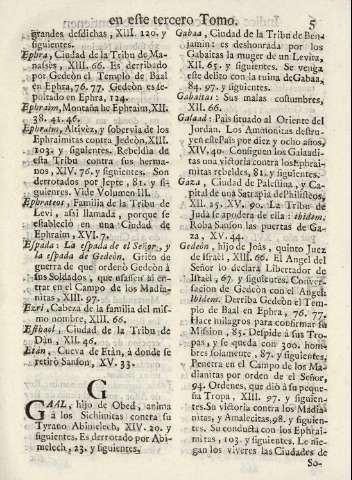 en este tercero Tomo.
5
grandes desdichas, XIII. 120. y
siguientes.
Ephra, Ciudad de la Tribu de Ma-
nassès, XIII. 66. Es derribado
por Gedeòn el Templo de Baal
en Ephra, 76. 77. Gedeòn es se-
pultado en Ephra, 124.
Ephraim, Montaña de Ephraim, XII.
38. 41. 46.
Ephraim, Altivèz, y sobervia de los
Ephraimitas contra Jedeòn, XIII.
103. y siguientes. Rebeldìa de
esta Tribu contra sus herma-
nos, XIV. 76. y siguientes. Son
derrotados por Jepte, 81. y si-
guientes. Vide Volumen III.
Ephrateos, Familia de la Tribu de
Levì, assi llamada, porque se
estableciò en una Ciudad de
Ephraim, XVI. 7.
Espada: La espada de el Señor, y
la espada de Gedeòn, Grito de
guerra de que ordenò Gedeòn à
sus Soldados, que usassen al en-
trar en el Campo de los Madia-
nitas, XIII. 97.
Ezri, Cabeza de la familia del mis-
mo nombre, XIII. 66.
Esthaol, Ciudad de la Tribu de
Dàn, XII. 46.
Etàn, Cueva de Etàn, à donde se
retirò Sansòn, XV. 33.
G
GAAL, hijo de Obed, anima
à los Sichimitas contra su
Tyrano Abimelech, XIV. 20. y
siguientes. Es derrotado por Abi-
melech, 23. y siguientes.
Gabaa, Ciudad de la Tribu de Ben-
jamìn: es deshonrada por los
Gabaitas la muger de un Levita,
XII. 65. y siguientes. Se venga
este delito con la ruina de Gabaa,
84. 97. y siguientes.
Gabaitas: Sus malas costumbres,
XII. 66.
Galaad: Paìs situado al Oriente del
Jordàn. Los Ammonitas destru-
yen este Paìs por diez y ocho años,
XIV. 40. Consiguen los Galaadi-
tas una victoria contra los Ephrai-
mitas rebeldes, 81. y siguientes.
Gaza, Ciudad de Palestina, y Ca-
pital de una Satrapìa de Philisteos,
XII. 25. XV. 90. La Tribu de
Judà se apodera de ella: ibidem.
Roba Sansòn las puertas de Ga-
za, XV. 44.
Gedeòn, hijo de Joàs, quinto Juez
de Israèl, XIII. 66. El Angel del
Señor lo declara Libertador de
Israèl, 67. y siguientes. Conver-
sacion de Gedeòn con el Angel:
ibidem. Derriba Gedeòn el Tem-
plo de Baal en Ephra, 76. 77.
Hace milagros para confirmar su
Mission, 85. Despide à sus Tro-
pas, y se queda con 300. hom-
bres solamente, 87. y siguientes.
Penetra en el Campo de los Ma-
dianitas por orden de el Señor,
94. Ordenes, que diò à su peque-
ña Tropa, XIII. 97. y siguien-
tes. Su victoria contra los Madia-
nitas, y Amalecitas, 98. y siguien-
tes. Su conducta con los Ephrai-
mitas, 103. y siguientes. Le nie-
gan los viveres las Ciudades de
So-